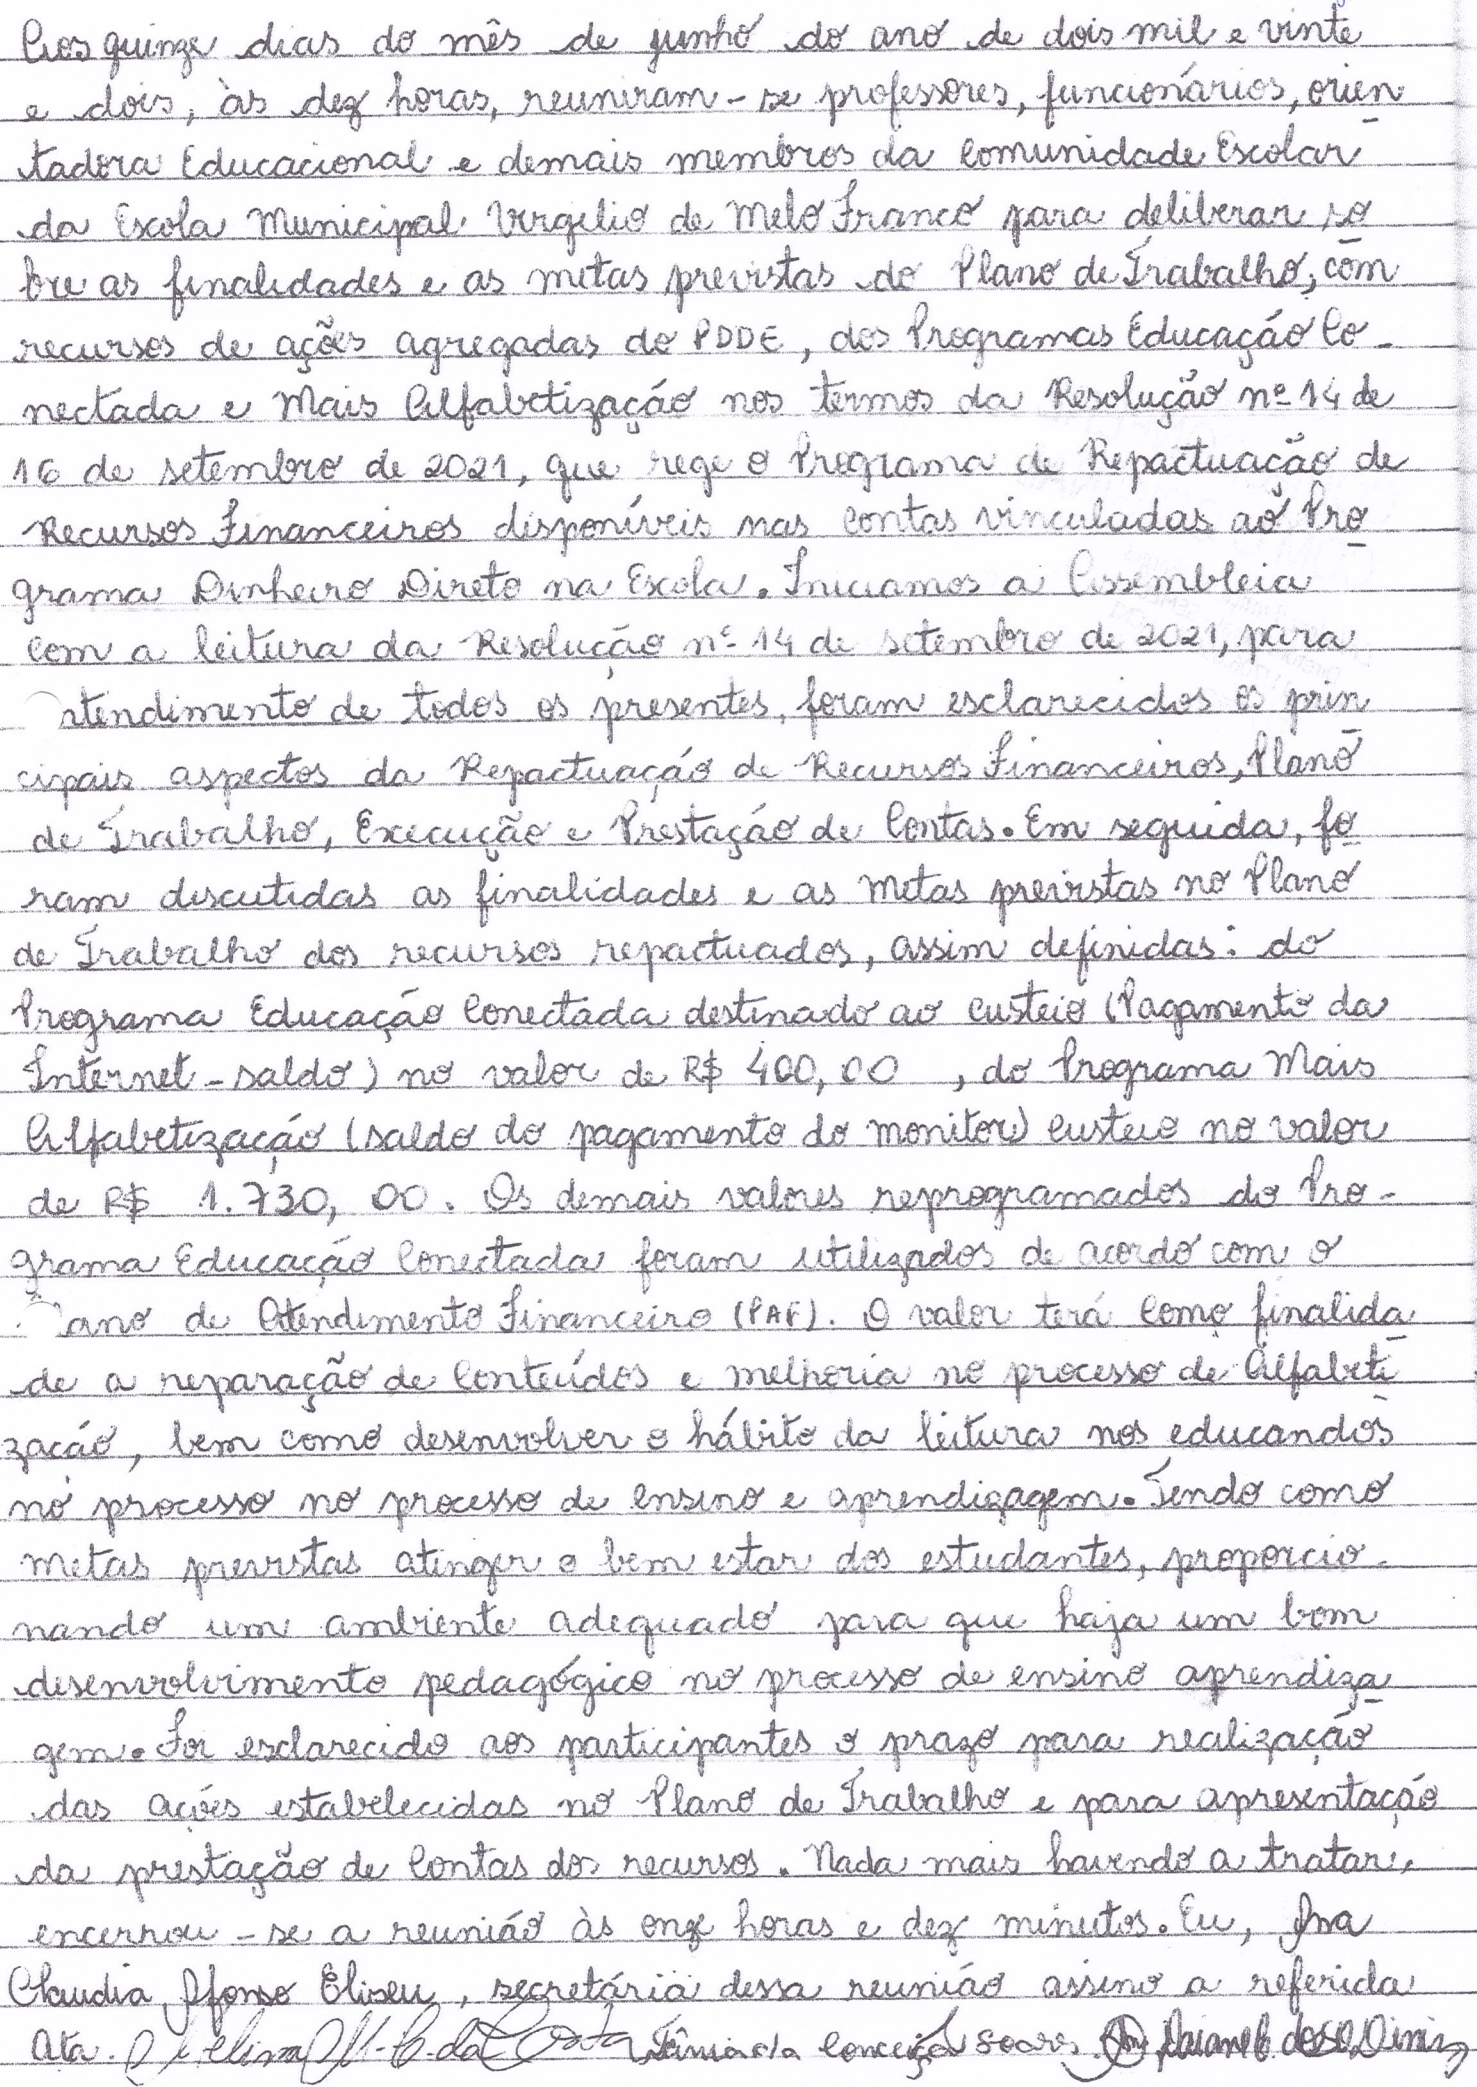 Aos quinze dias do mês de junho do ano de dois mil e vinte
e dois, às dez horas, reuniram-se professores, funcionários, orien
tadora Educacional e demais membros da Comunidade Escolar
da Escola Municipal Virgilio de Melo Franco para deliberar so
bre as finalidades e as metas previstas do Plano de Trabalho, com
recursos de ações agregadas do PDDE, dos Programas Educação Co-
nectada e Mais Alfabetização nos termos da Resolução nº 14 de
16 de setembro de 2021, que rege o Programa de Repactuação de
Recursos Financeiros disponíveis nas contas vinculadas ao Pro
grama Dinheiro Direto na Escola. Iniciamos a Assembleia
com a leitura da Resolução nº 14 de setembro de 2021, para
atendimento de todos os presentes, foram esclarecidos os prin
cipais aspectos da Repactuação de Recursos Financeiros, Plano
de Trabalho, Execução e Prestação de Contas. Em seguida, fo
ram discutidas as finalidades e as metas previstas no Plano
de Trabalho dos recursos repactuados, assim definidas: do
Programa Educação Conectada destinado ao custeio (Pagamento da
Internet - saldo) no valor de R$ 400,00 , do Programa Mais
Alfabetização (saldo do pagamento do monitor) custeio no valor
de R$ 1.730,00. Os demais valores reprogramados do Pro-
grama Educação Conectada foram utilizados de acordo com o
lano de Atendimento Financeiro (PAF). O valor terá como finalida
de a reparação de conteúdos e melhoria no processo de Alfabeti
zação, bem como desenvolver o hábito da leitura nos educandos
no processo no processo de ensino e aprendizagem. Tendo como
metas previstas atinger o bem estar dos estudantes, proporcio-
nando um ambiente adequado para que haja um bom
desenvolvimento pedagógico no processo de ensino aprendiza
gem. Foi esclarecido aos participantes o prazo para realização
das ações estabelecidas no Plano de Trabalho e para apresentação
da prestação de Contas dos recursos. Nada mais havendo a tratar,
encerrou-se a reunião às onze horas e dez minutos. Eu, Ana
Claudia Afonso Eliseu, secretária dessa reunião assino a referida
Ata. da Costa Tânia da Conceição Soares Daiane Diniz